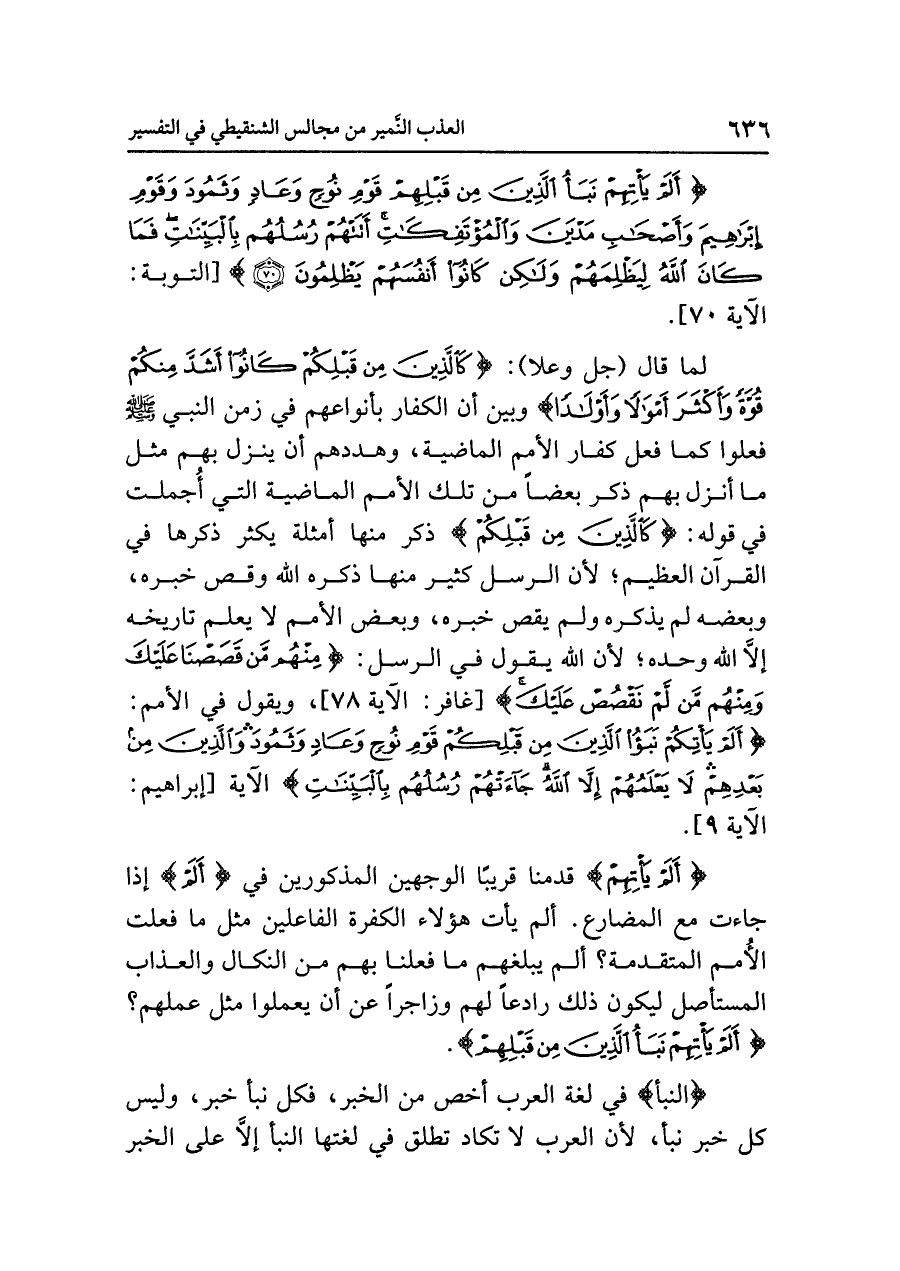 ٦٣٦ العذب النَّمير من مجالس الشنقيطي في التفسير
﴿ أَلَمْ يَأْتِهِمْ نَبَأُ ٱلَّذِينَ مِن قَبْلِهِمْ قَوْمِ نُوحٍ وَعَادٍ وَثَمُودَ وَقَوْمِ
إِبْرَٰهِيمَ وَأَصْحَٰبِ مَدْيَنَ وَٱلْمُؤْتَفِكَٰتِۚ أَتَتْهُمْ رُسُلُهُم بِٱلْبَيِّنَٰتِۖ فَمَا
كَانَ ٱللَّهُ لِيَظْلِمَهُمْ وَلَٰكِن كَانُوٓا۟ أَنفُسَهُمْ يَظْلِمُونَ ۝٧٠ ﴾ [التوبة:
الآية ٧٠].
لما قال (جل وعلا): ﴿ كَٱلَّذِينَ مِن قَبْلِكُمْ كَانُوٓا۟ أَشَدَّ مِنكُمْ
قُوَّةً وَأَكْثَرَ أَمْوَٰلًا وَأَوْلَٰدًا﴾ وبين أن الكفار بأنواعهم في زمن النبي ﷺ
فعلوا كما فعل كفار الأمم الماضية، وهددهم أن ينزل بهم مثل
ما أنزل بهم ذكر بعضاً من تلك الأمم الماضية التي أُجملت
في قوله: ﴿ كَٱلَّذِينَ مِن قَبْلِكُمْ ﴾ ذكر منها أمثلة يكثر ذكرها في
القرآن العظيم؛ لأن الرسل كثير منها ذكره الله وقص خبره،
وبعضه لم يذكره ولم يقص خبره، وبعض الأمم لا يعلم تاريخه
إلاَّ الله وحده؛ لأن الله يقول في الرسل: ﴿ مِنْهُم مَّن قَصَصْنَا عَلَيْكَ
وَمِنْهُم مَّن لَّمْ نَقْصُصْ عَلَيْكَۚ ﴾ [غافر: الآية ٧٨]، ويقول في الأمم:
﴿ أَلَمْ يَأْتِكُمْ نَبَؤُا۟ ٱلَّذِينَ مِن قَبْلِكُمْ قَوْمِ نُوحٍ وَعَادٍ وَثَمُودَۛ وَٱلَّذِينَ مِنۢ
بَعْدِهِمْۛ لَا يَعْلَمُهُمْ إِلَّا ٱللَّهُۚ جَآءَتْهُمْ رُسُلُهُم بِٱلْبَيِّنَٰتِ ﴾ الآية [إبراهيم:
الآية ٩].
﴿ أَلَمْ يَأْتِهِمْ﴾ قدمنا قريبًا الوجهين المذكورين في ﴿ أَلَمْ ﴾ إذا
جاءت مع المضارع. ألم يأت هؤلاء الكفرة الفاعلين مثل ما فعلت
الأُمم المتقدمة؟ ألم يبلغهم ما فعلنا بهم من النكال والعذاب
المستأصل ليكون ذلك رادعاً لهم وزاجراً عن أن يعملوا مثل عملهم؟
﴿ أَلَمْ يَأْتِهِمْ نَبَأُ ٱلَّذِينَ مِن قَبْلِهِمْ﴾.
﴿النبأ﴾ في لغة العرب أخص من الخبر، فكل نبأ خبر، وليس
كل خبر نبأ، لأن العرب لا تكاد تطلق في لغتها النبأ إلاَّ على الخبر